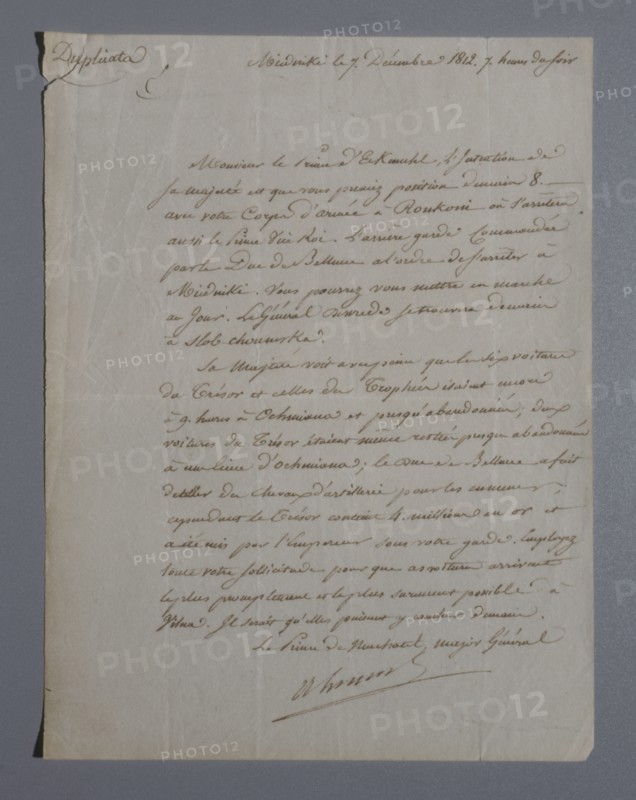 Duplicata
Miedniki le 7. Décembre 1812. 7. heures du soir
Monsieur le Prince d'Eckmuhl, L'Intention de
Sa Majesté est que vous preniez position demain 8.
avec votre Corps d'armée à Roukoni où s'arrêtera
aussi le Prince Vice Roi. L'arrière garde Commandée
par le Duc de Bellune a l'ordre de s'arrêter à
Miedniki. Vous pourrez vous mettre en marche
au Jour. Le Général se trouvera demain
à Slob-choumska.
Sa Majesté voit avec peine que les six voitures
du Trésor et celles des Trophées étaient encore
à 9. heures à Ochmiana et presqu'abandonnées; deux
voitures du Trésor étaient même restées presque abandonnées
à une lieue d'Ochmiana; le Duc de Bellune a fait
dételer des chevaux d'artillerie pour les emmener;
cependant le Trésor contient 4. millions en or et
a été mis par l'Empereur sous votre garde. Employez
toute votre sollicitude pour que ces voitures arrivent
le plus promptement et le plus surement possible à
Vilna. Il serait qu'elles puissent y demain.
Le Prince de Neuchatel, Major Général
PHOTO12